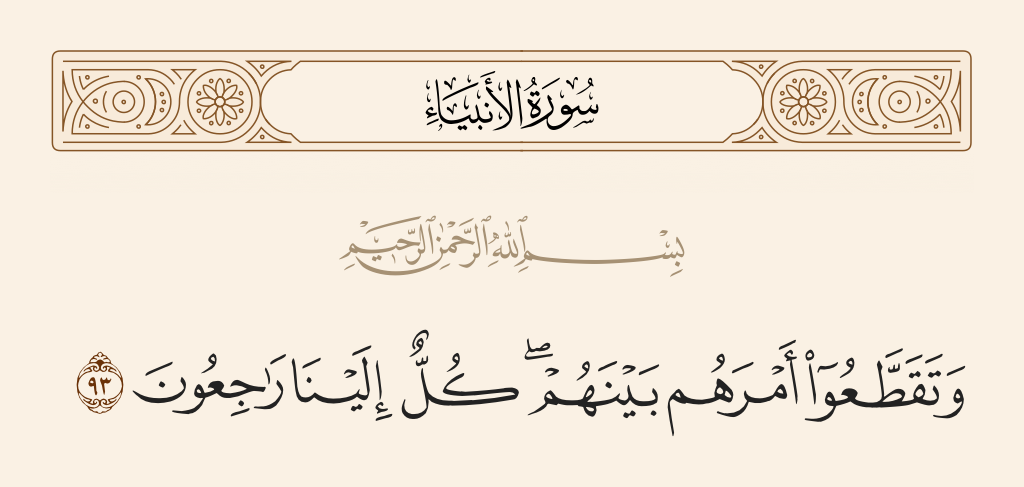 سُورَةُ الأَنبِيَاءِ
بِسْمِ ٱللَّهِ ٱلرَّحْمَٰنِ ٱلرَّحِيمِ
وَتَقَطَّعُوٓا۟ أَمْرَهُم بَيْنَهُمْ ۖ كُلٌّ إِلَيْنَا رَٰجِعُونَ ٩٣